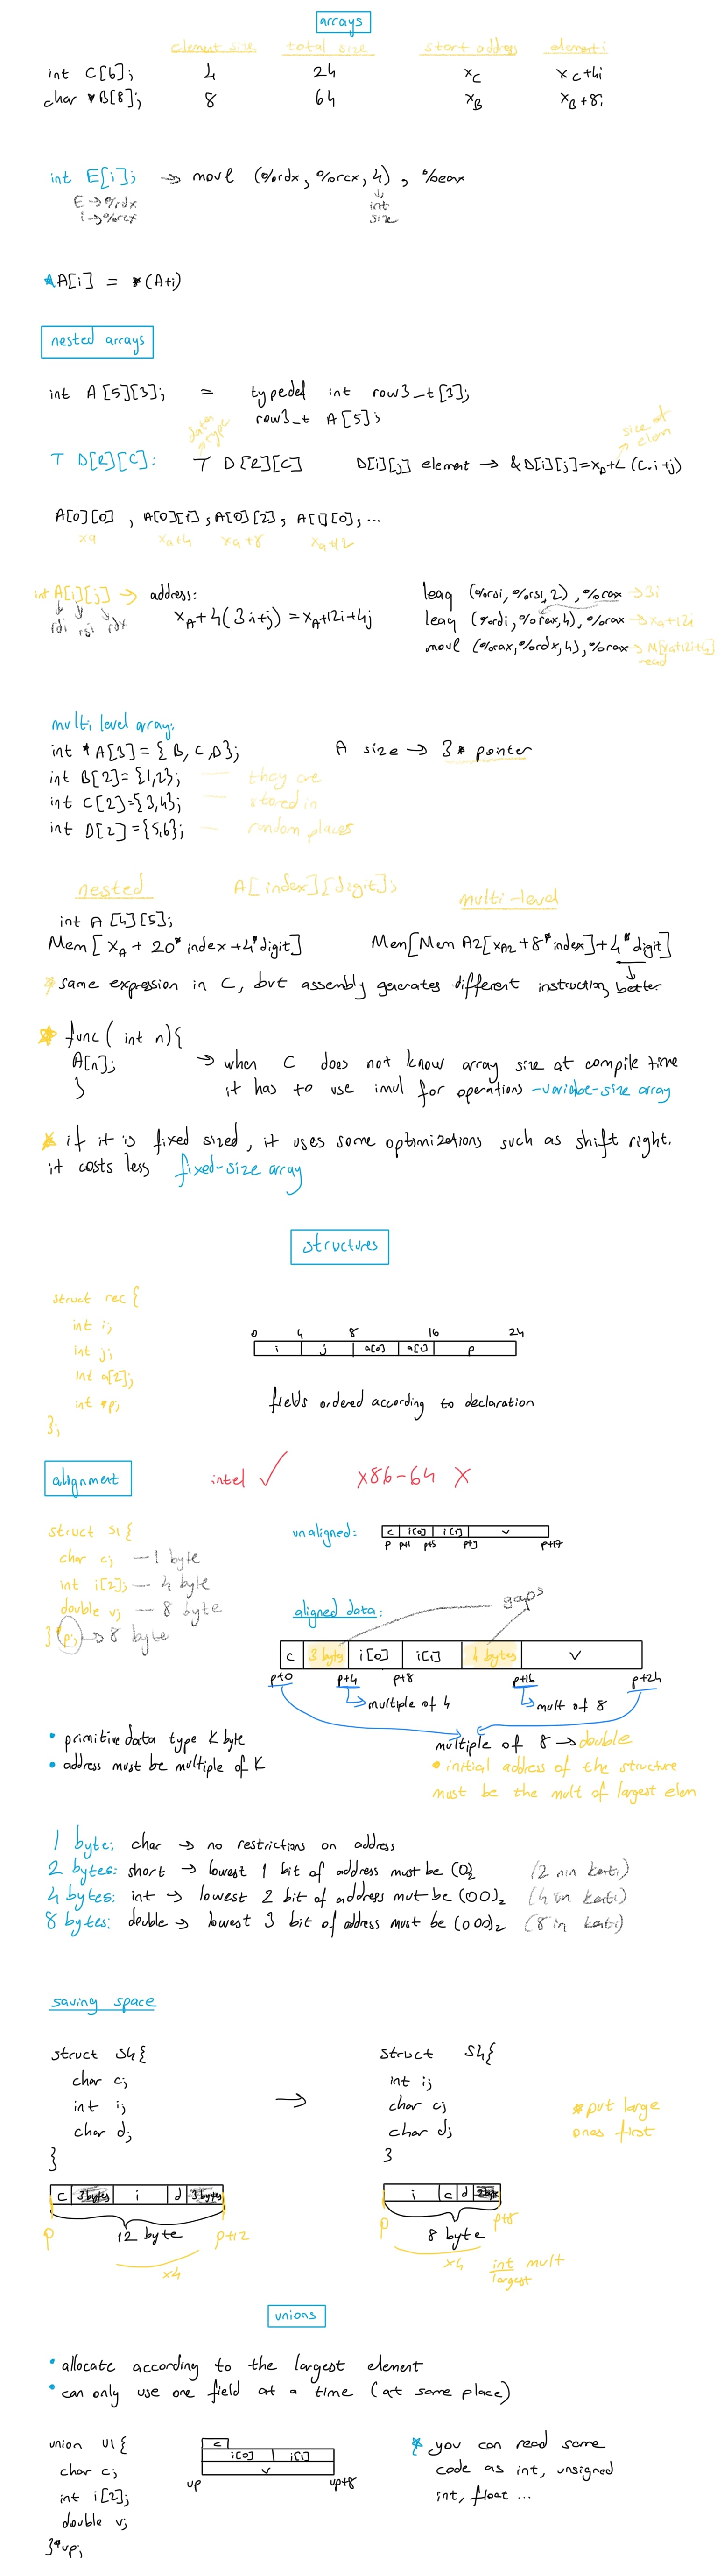 arrays
element size total size start address element i
int C[6]; 4 24 xC xC+4i
char *B[8]; 8 64 xB xB+8i
int E[i]; → movl (%rdx, %rcx, 4), %eax
E → %rdx
i → %rcx
int
size
*A[i] = *(A+i)
nested arrays
int A[5][3]; = typedef int row3_t[3];
row3_t A[5];
data type
size of elem
T D[R][C]: T D[R][C] D[i][j] element → &D[i][j]=xD+L(C.i+j)
A[0][0], A[0][1], A[0][2], A[1][0], ...
xa xa+4 xa+8 xa+12
int A[i][j] → address:
rdi rsi rdx
xA+4(3i+j)=xA+12i+4j
leaq (%rsi,%rsi,2),%rax → 3i
leaq (%rdi,%rax,4),%rax → xa+12i
movl (%rax,%rdx,4),%rax → M[xa+12i+4j]
read
multi level array:
int *A[3]={B,C,D}; A size → 3* pointer
int B[2]={1,2}; — they are
int C[2]={3,4}; — stored in
int D[2]={5,6}; — random places
nested A[index][digit]; multi-level
int A[4][5];
Mem[xA + 20*index+4*digit] Mem[Mem A2[xA2+8*index]+4*digit]
same expression in C, but assembly generates different instruction, better
func(int n){
A[n];
}
→ when C does not know array size at compile time
it has to use imul for operations -variable-size array
if it is fixed sized, it uses some optimizations such as shift right.
it costs less fixed-size array
structures
struct rec{
int i;
int j;
int a[2];
int *p;
};
0 4 8 16 24
i j a[0] a[1] p
fields ordered according to declaration
alignment intel ✓ x86-64 X
struct S1{
char c; — 1 byte
int i[2]; — 4 byte
double v; — 8 byte
}*p; → 8 byte
unaligned: c i[0] i[1] v
p p+1 p+5 p+9 p+17
aligned data: gaps
c 3 bytes i[0] i[1] 4 bytes v
p+0 p+4 p+8 p+16 p+24
multiple of 4 mult of 8
multiple of 8 → double
• primitive data type K byte
• address must be multiple of K
• initial address of the structure
must be the mult of largest elem
1 byte: char → no restrictions on address
2 bytes: short → lowest 1 bit of address must be (0)2 (2 nin katı)
4 bytes: int → lowest 2 bit of address mut be (00)2 (4 ün katı)
8 bytes: double → lowest 3 bit of address must be (000)2 (8 in katı)
saving space
struct S4{
char c;
int i;
char d;
}
→
struct S4{
int i;
char c;
char d;
}
*put large
ones first
c 3 bytes i d 3 bytes
p 12 byte p+12
x4
i c d 2 byte
p 8 byte p+8
x4 int mult
largest
unions
• allocate according to the largest element
• can only use one field at a time (at same place)
union U1{
char c;
int i[2];
double v;
}*up;
c
i[0] i[1]
v
up up+8
* you can read same
code as int, unsigned
int, float ...